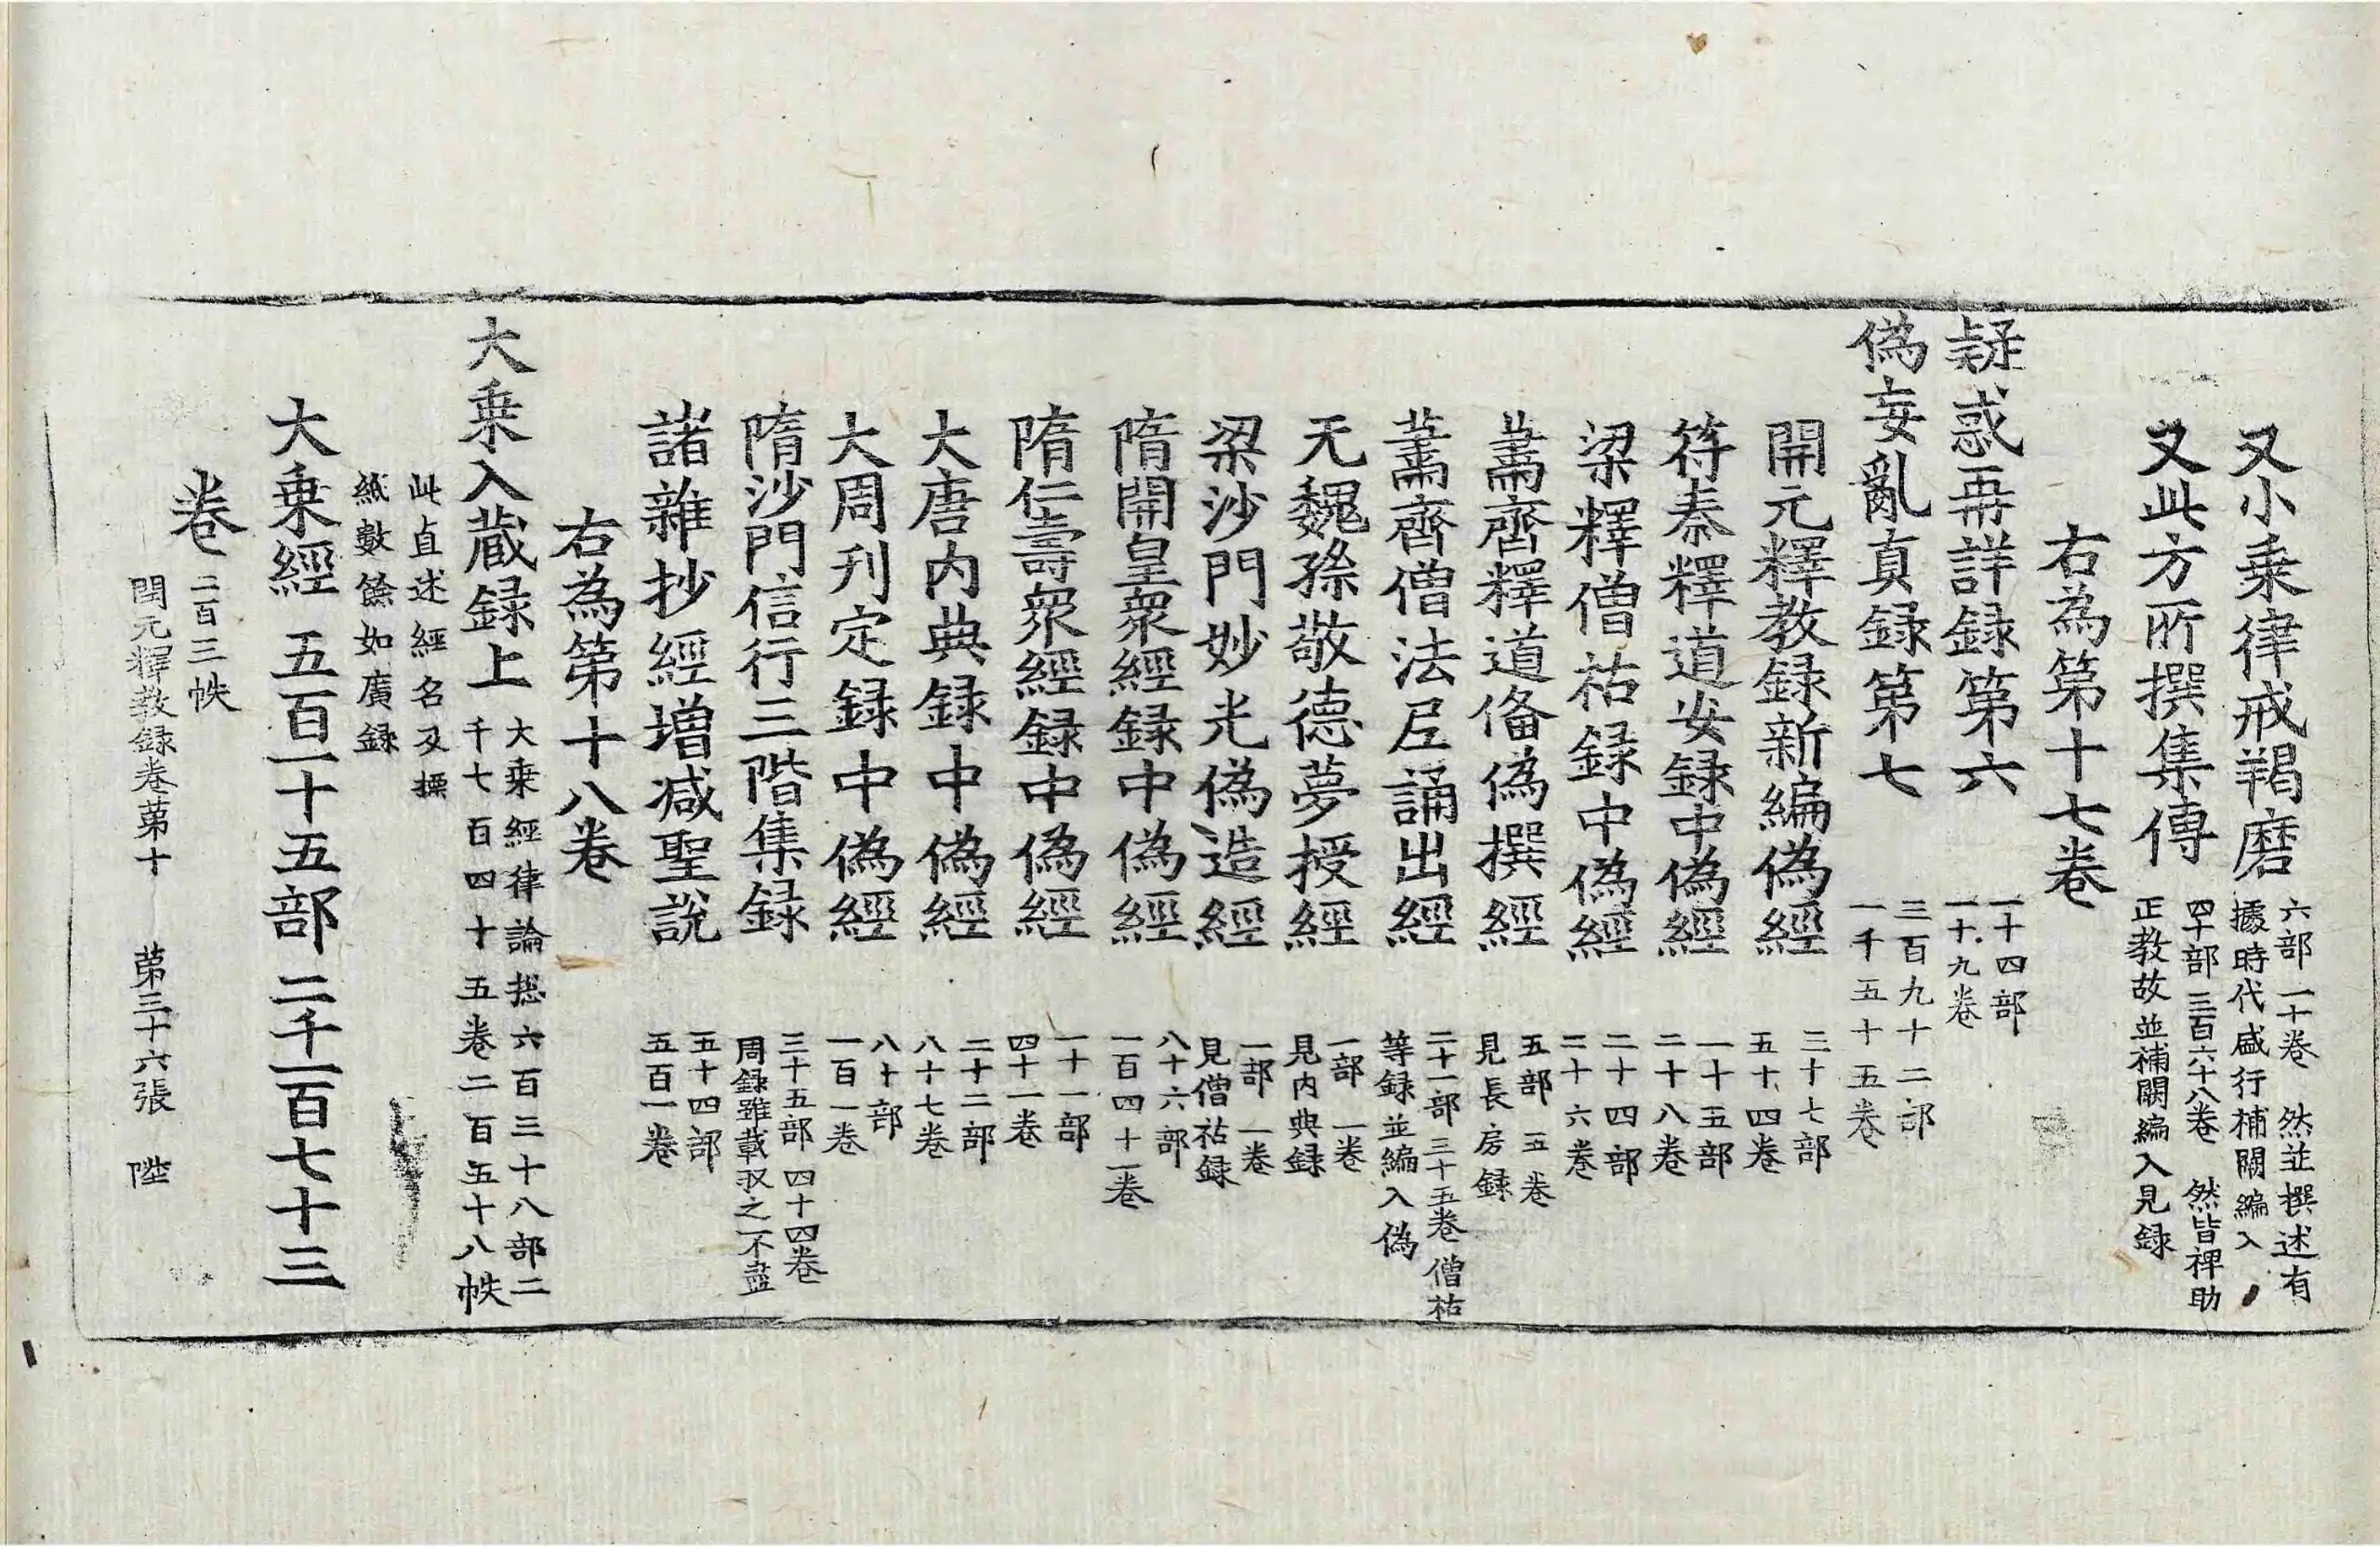 又小乗律戒羯磨 六部一十卷 然並撰述有
據時代盛行補闕編入
又此方所撰集傳 四十部三百六十八卷 然皆裨助
正教故並補闕編入見録
右為第十七卷
疑惑再詳録第六 一十四部
一十九卷
偽妄亂真録第七 三百九十二部
一千五十五卷
開元釋教録新編偽經 三十七部
五十四卷
符秦釋道安録中偽經 二十五部
二十八卷
梁釋僧祐録中偽經 二十四部
二十六卷
蕭齊釋道备偽撰經 五部 五卷
見長房録
蕭齊僧法尼誦出經 二十一部 三十五卷 僧祐
等録並編入偽
元魏孫敬德夢授經 一部 一卷
見内典録
梁沙門妙光偽造經 一部 一卷
見僧祐録
隋開皇衆經録中偽經 八十六部
一百四十一卷
隋仁壽衆經録中偽經 一十一部
四十一卷
大唐内典録中偽經 二十二部
八十七卷
大周刋定録中偽經 八十部
一百一卷
隋沙門信行三階集録 三十五部 四十四卷
周録雖載収之不盡
諸雜抄經增减聖說 五十四部
五百一卷
右為第十八卷
大乗入蔵録上 大乗經律論惣六百三十八部二
千七百四十五卷二百五十八帙
此直述經名及標
紙數餘如廣録
大乗經 五百一十五部 二千一百七十三
卷 二百三帙
開元釋教録卷苐十 苐三十六張 陞